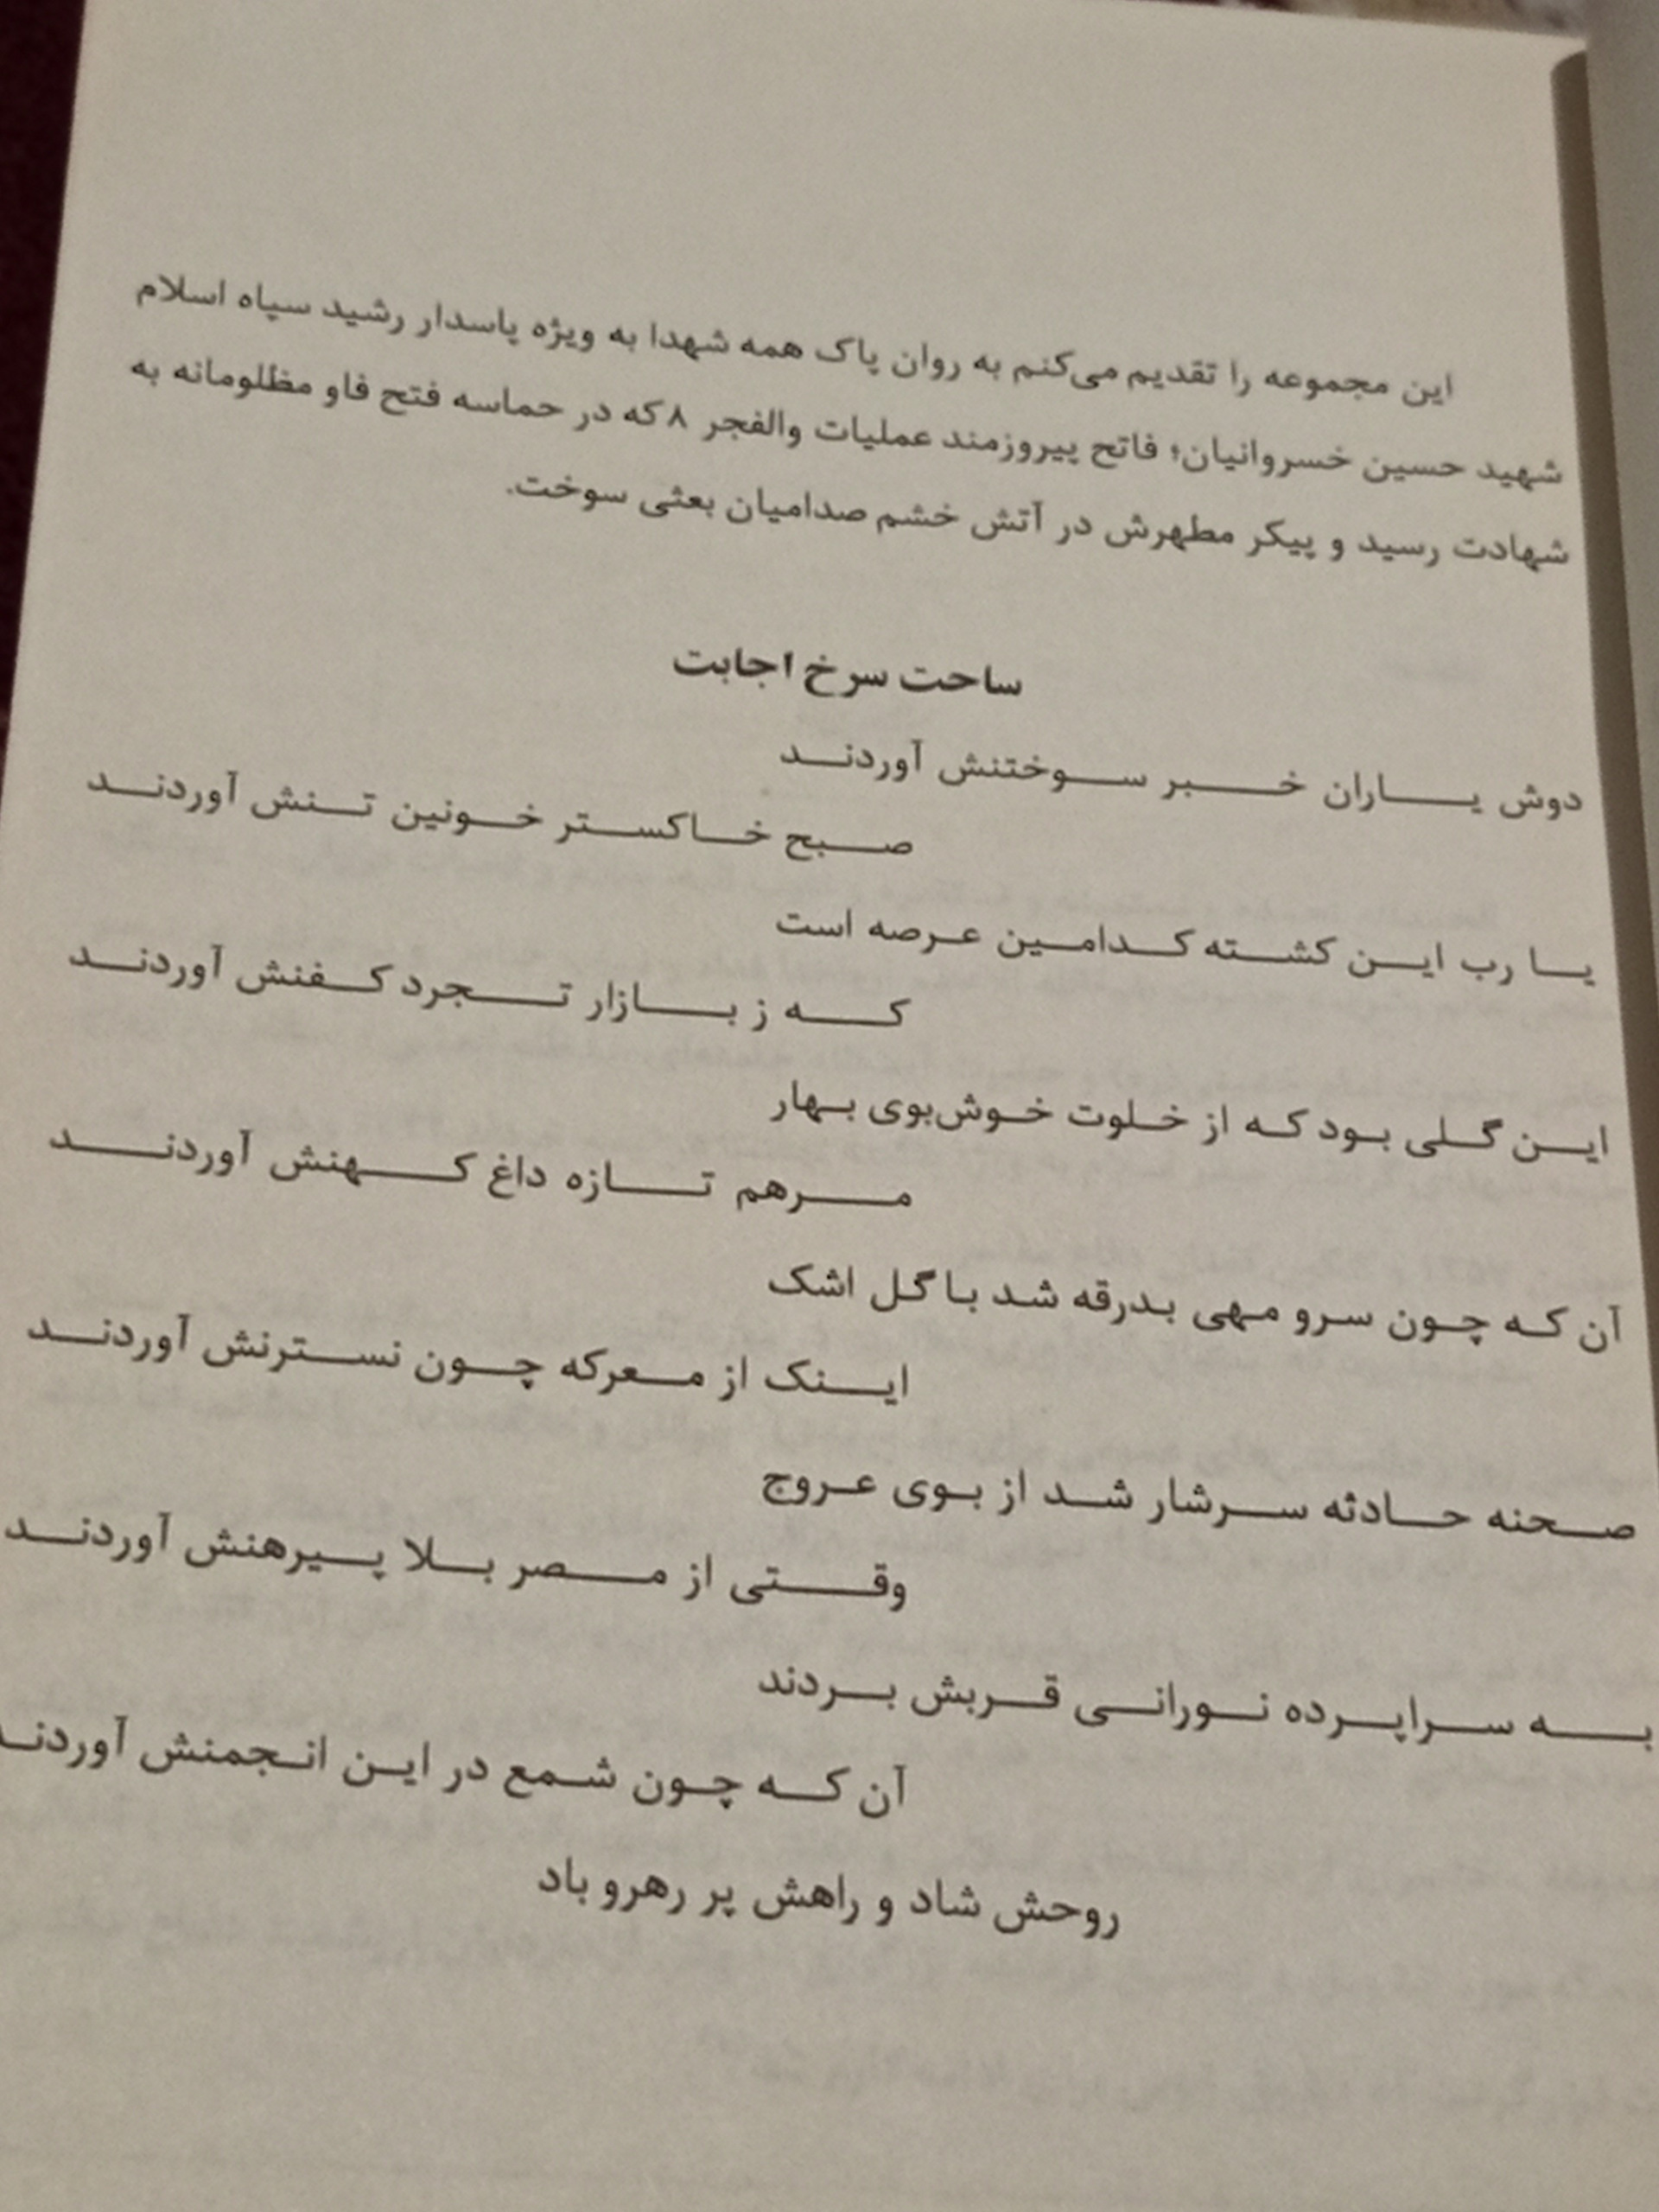 این مجموعه را تقدیم می‌کنم به روان پاک همه شهدا به ویژه پاسدار رشید سپاه اسلام
شهید حسین خسروانیان؛ فاتح پیروزمند عملیات والفجر ۸ که در حماسه فتح فاو مظلومانه به
شهادت رسید و پیکر مطهرش در آتش خشم صدامیان بعثی سوخت.
ساحت سرخ اجابت
دوش یاران خبر سوختنش آوردند
صبح خاکستر خونین تنش آوردند
یا رب این کشته کدامین عرصه است
که ز بازار تجرد کفنش آوردند
این گلی بود که از خلوت خوش‌بوی بهار
مرهم تازه داغ کهنش آوردند
آن که چون سرو مهی بدرقه شد با گل اشک
اینک از معرکه چون نسترنش آوردند
صحنه حادثه سرشار شد از بوی عروج
وقتی از مصر بلا پیرهنش آوردند
به سراپرده نورانی قربش بردند
آن که چون شمع در این انجمنش آوردند
روحش شاد و راهش پر رهرو باد